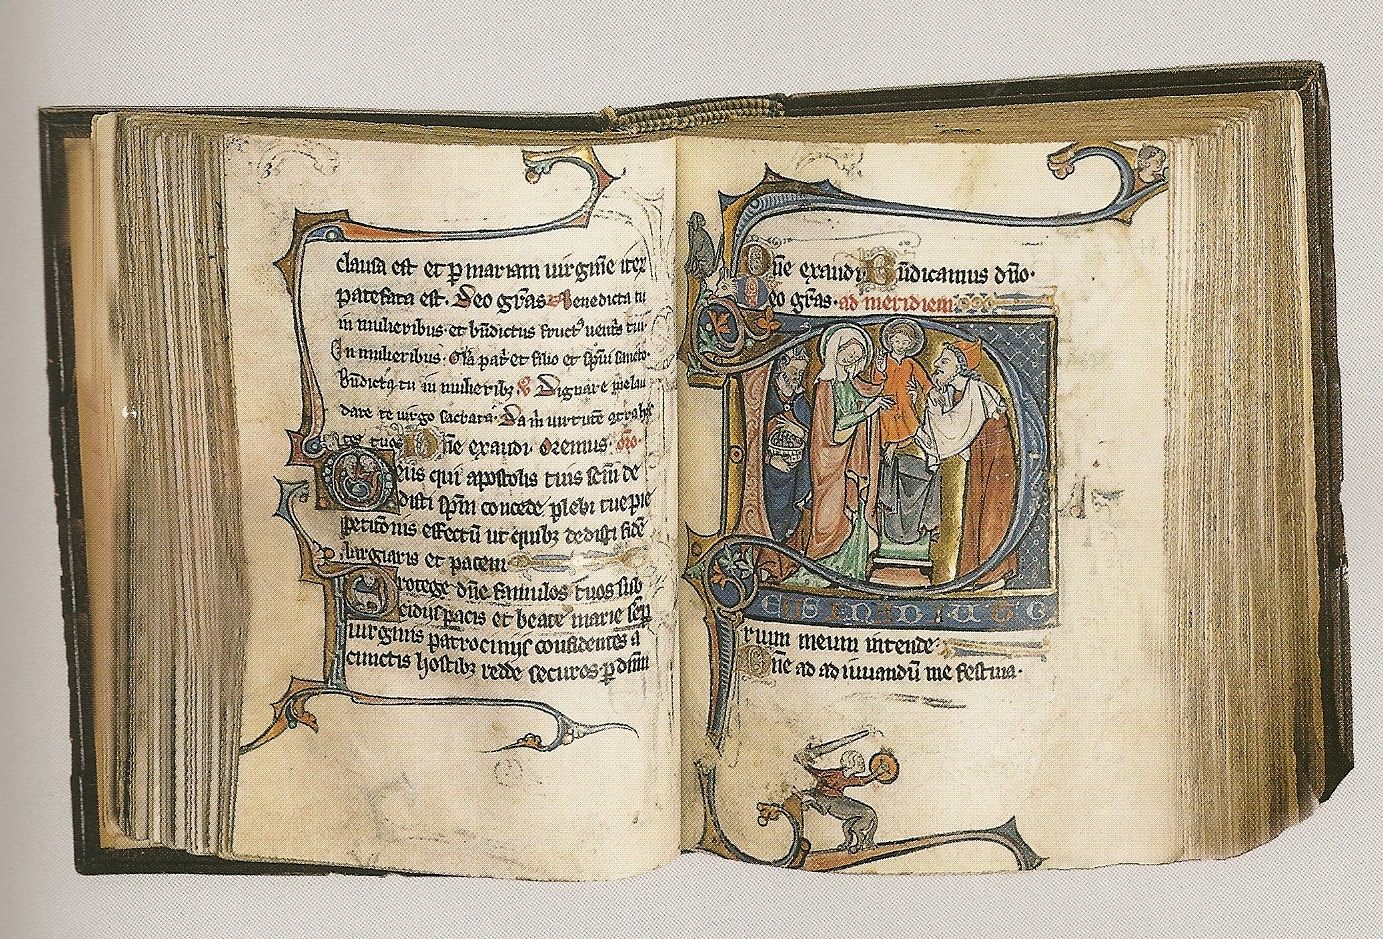 clausa est et p mariam uirgine iter
patefata est. Deo gras Benedicta tu
in mulieribus. et bndictus fruct uentris tui.
In mulieribus. Gla patri et filio et spiui sancto.
Bndicta tu in mulieribz Dignare me lau
dare te uirgo sacrata. Da m uirtute
tes tuos Dne exaudi. Oremus. oro.
Deus qui apostolis tuis scm de
disti spm concede plebi tue pie
peticonis effectu ut quibz dedisti fide
largiaris et pacem
Protege dne famulos tuos sub
cidiis pacis et beate marie semp
uirginis patrocinijs confidentes a
cunctis hostibz redde securos. p dnm
Dne exaudi Bndicamus dno.
Deo gras. ad meridiem.
DEUS IN ADIUTO
rium meum intende.
Dne ad adiuuandu me festina.